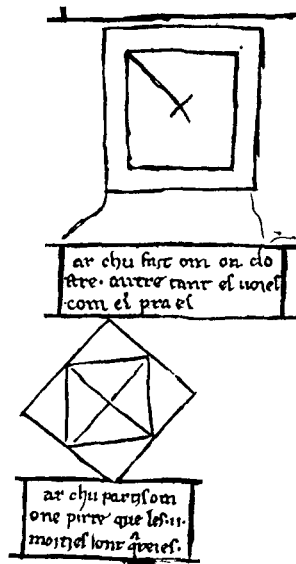 ar chu fait om on clo
stre. autre tant es uoies
com el prael
ar chu partis om
one pirre que les .ii.
moities sont qͣreies.